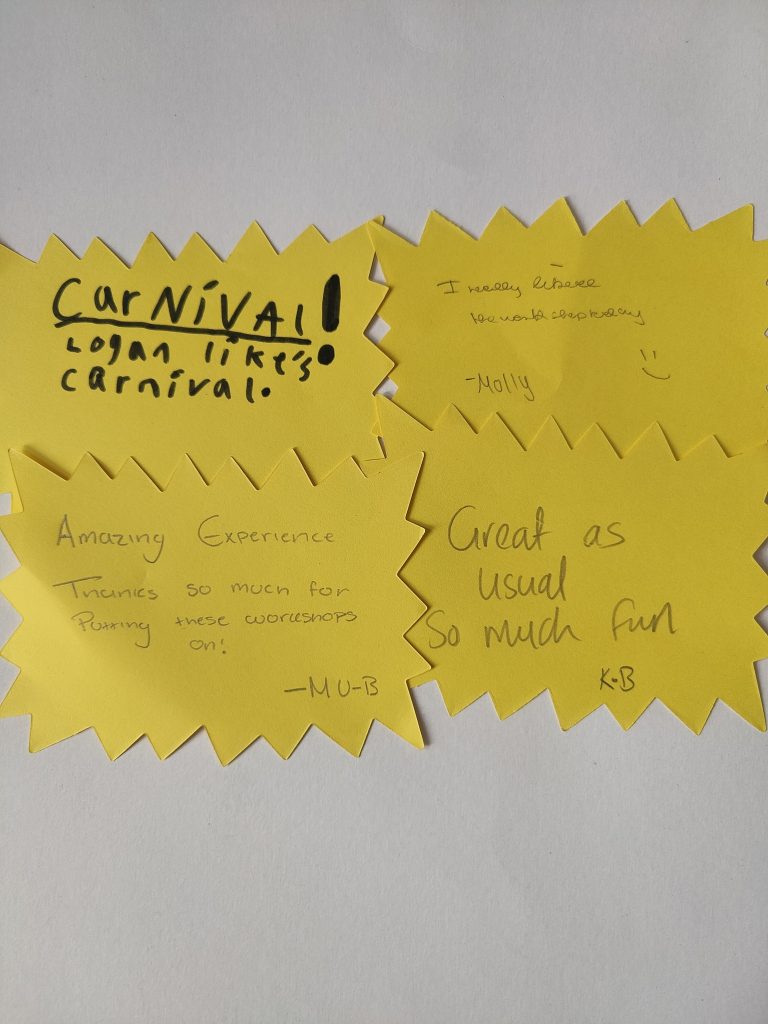 CarNíVAl!
Logan like's
carníval.
I really
-Molly
Amazing Experience
Thanks so much for
Putting these workshops
on!
-MU-B
Great as
usual
So much fun
K.B